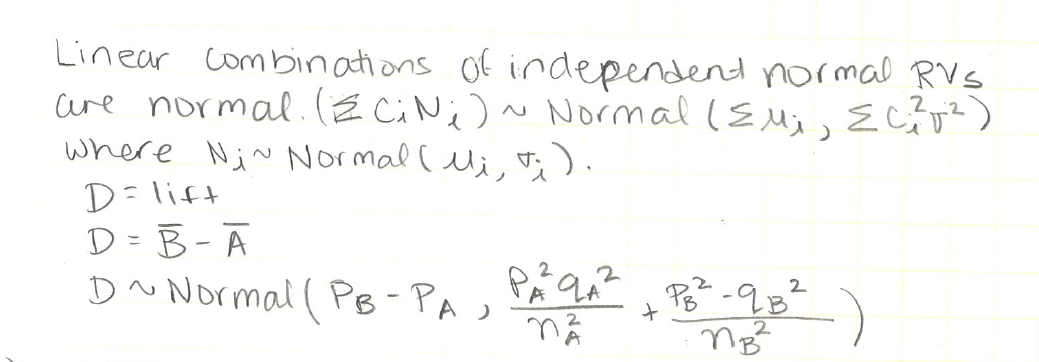 Linear combinations of independent normal RVs
are normal. (Σ CᵢNᵢ) ~ Normal (Σ μᵢ, Σ Cᵢ²σ²)
where Nᵢ ~ Normal (μᵢ, σᵢ).
D = lift
D = B̅ - A̅
D ~ Normal ( P_B - P_A , P_A² q_A² / n_A² + P_B² - q_B² / n_B² )